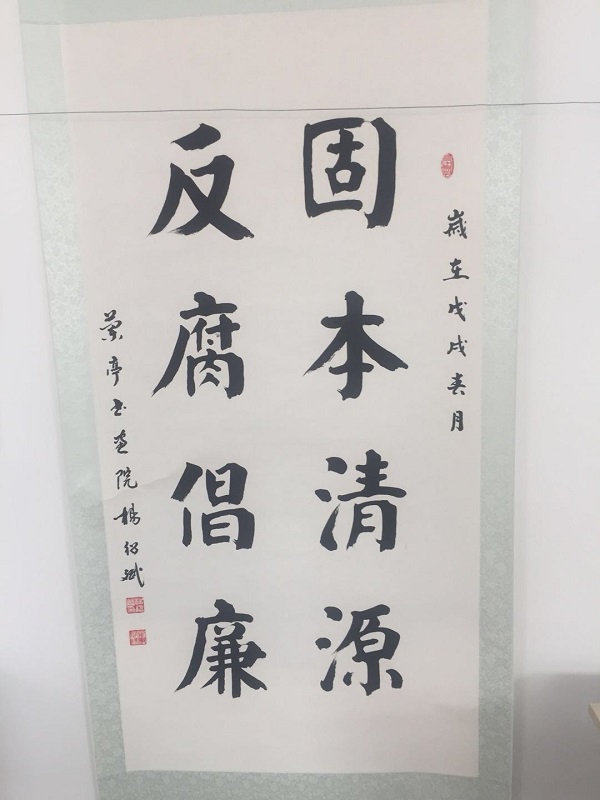 歲在戊戌春月
固本清源
反腐倡廉
蘭亭书画院楊紹斌